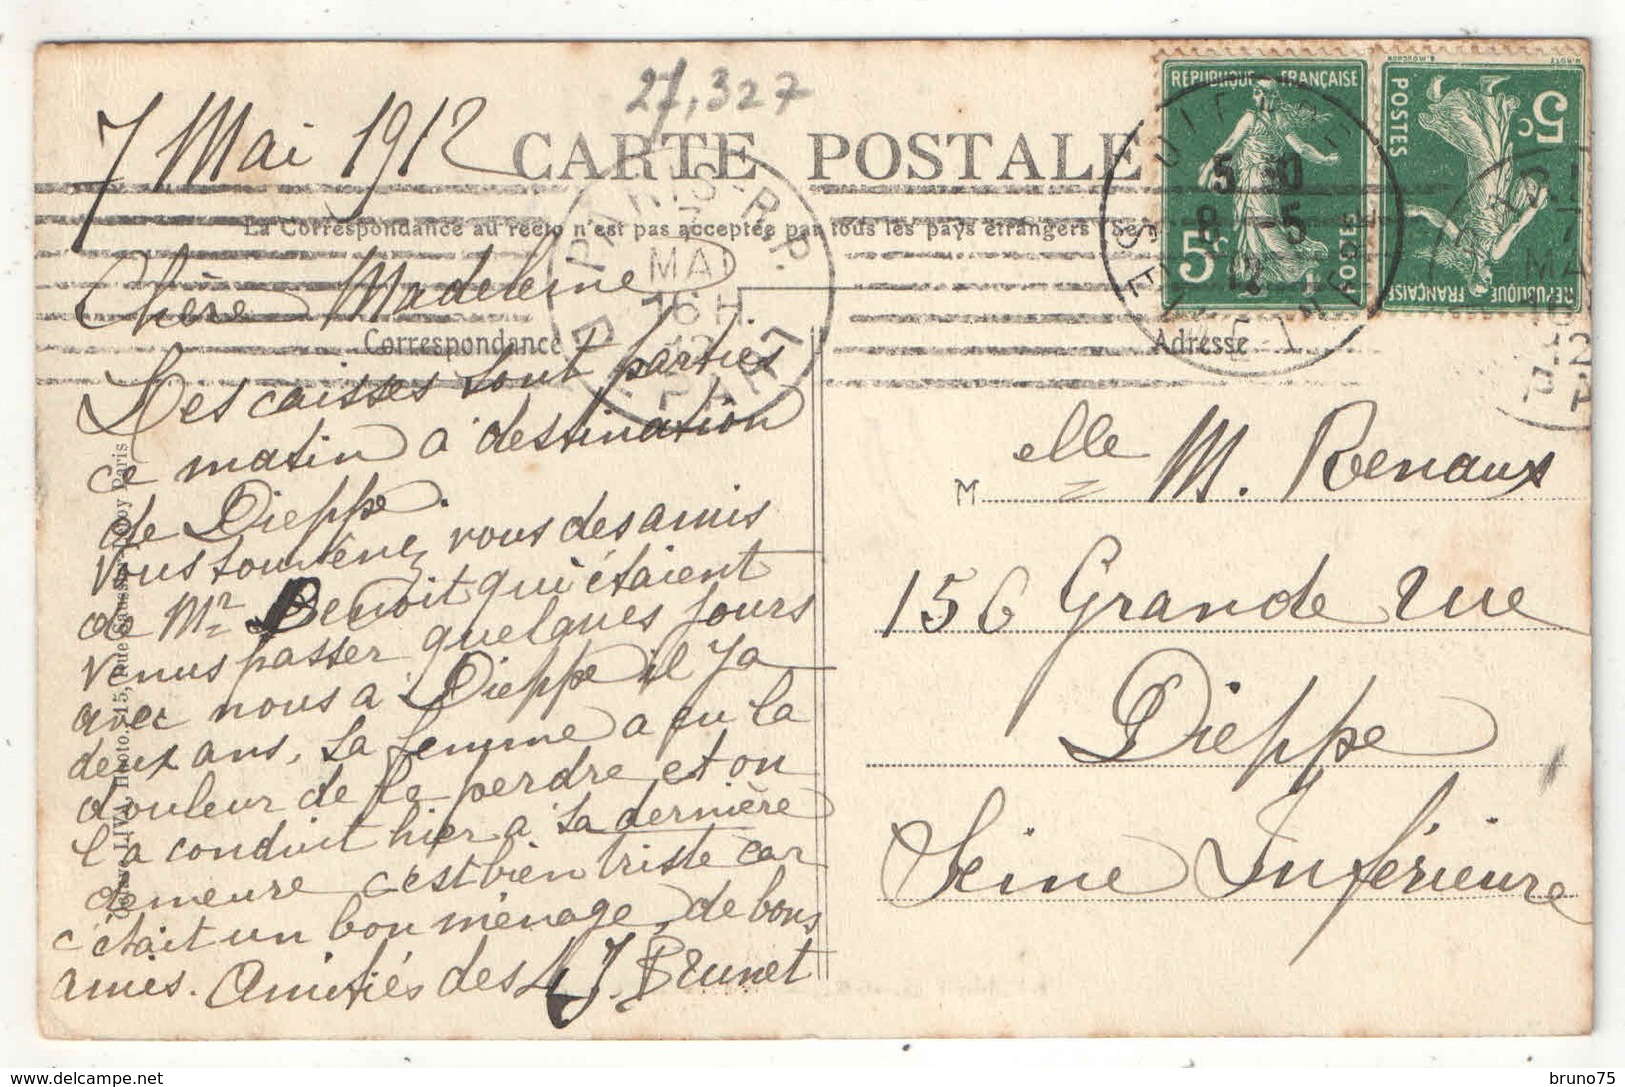 27,327
7 Mai 1912
CARTE POSTALE
La Correspondance au recto n'est pas acceptée par tous les pays étrangers Se
Chère Madeleine
Correspondance
Les caisses sont parties
ce matin à destination
de Dieppe.
Vous souvenez vous des amis
de Mr Benoit qui étaient
venus passer quelques jours
avec nous a Dieppe il y a
deux ans, la femme a eu la
douleur de le perdre et on
l'a conduit hier à sa dernière
demeure c'est bien triste car
c'était un bon ménage, de bons
amis. Amitiés des 4 J. Brunet
Gustave LIVA, Photo, 15, rue Paris
PARIS R.P.
7
MAI
16 H
12
DÉPART
REPUBLIQUE FRANÇAISE
5c
POSTES
REPUBLIQUE FRANÇAISE
5c
POSTES
5 10
8 -5
12
Adresse
M elle M. Renaux
156 Grande rue
Dieppe
Seine Inférieure
bruno75